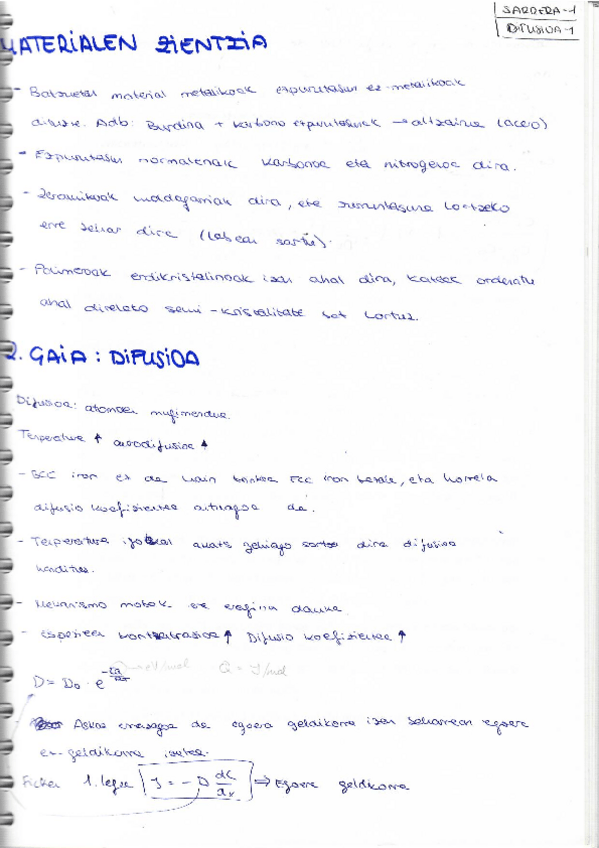 SARRERA-1
DIFUSIOA-1
MATERIALEN ZIENTZIA
- Batzuetan material metalikoak ezpurutasun ez-metalikoak
dituzte. Adb: Burdina + karbono ezpurutasunak → altzairua (acero)
- Ezpurutasun normalenak karbonoa eta nitrogenoa dira.
- Zeramikoak moldagarriak dira, eta zurruntasuna lortzeko
erre behar dira (labean sartu).
- Polimeroak erdikristalinoak izan ahal dira, kateak ordenatu
ahal direlako semi-kristalitate bat lortuz.
2. GAIA: DIFUSIOA
Difusioa: atomoen mugimendua.
Tenperatura ↑ autodifusioa ↑
- BCC iron ez da hain trinkoa FCC iron bezala, eta horrela
difusio koefizientea altuagoa da.
- Tenperatura igotzeal akats gehiago sortzen dira difusioa
handituz.
- Mekanismo motak ere eragina dauka.
- Espezieen kontzentrazioa ↑ Difusio koefizientea ↑
D = D₀ · e^(-Q/RT) Q = J/mol
- Askoz errazagoa da egoera geldikorra izan beharrean egoera
ez-geldikorra izatea.
Ficken 1. legea J = -D dC/dx ⇒ Egoera geldikorra